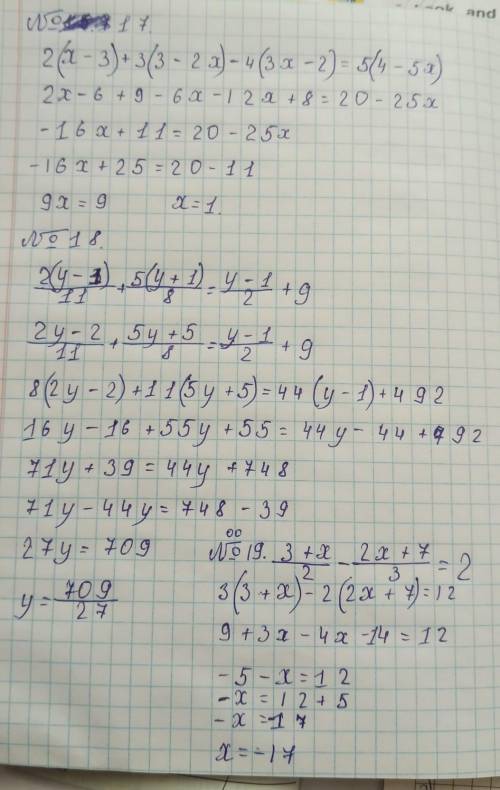 № 17.
2(x-3)+3(3-2x)-4(3x-2)=5(4-5x)
2x-6+9-6x-12x+8=20-25x
-16x+11=20-25x
-16x+25=20-11
9x=9 x=1.
№18.
2(y-1)/11+5(y+1)/8=y-1/2+9
2y-2/11+5y+5/8=y-1/2+9
8(2y-2)+11(5y+5)=44(y-1)+492
16y-16+55y+55=44y-44+792
71y+39=44y+748
71y-44y=748-39
27y=709
y=709/27
№19. 3+x/2-2x+7/3=2
3(3+x)-2(2x+7)=12
9+3x-4x-14=12
-5-x=12
-x=12+5
-x=17
x=-17